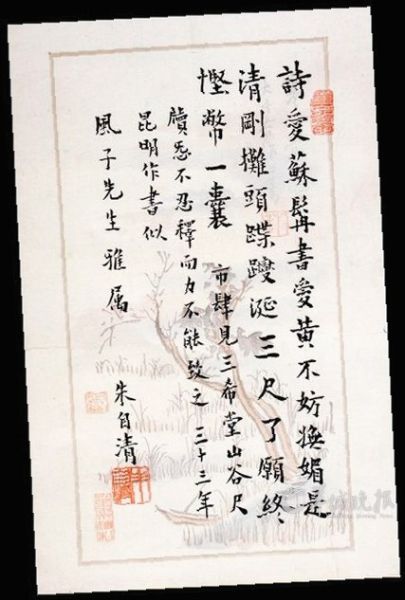 詩愛蘇髯書愛黃不妨撫媚是
清剛攤頭蹀躞涎三尺了願終
慳幣一囊 市肆見三希堂山谷尺
牘愛不忍釋而力不能致之 三十三年
昆明作書似
風子先生雅属
朱自清
晚报